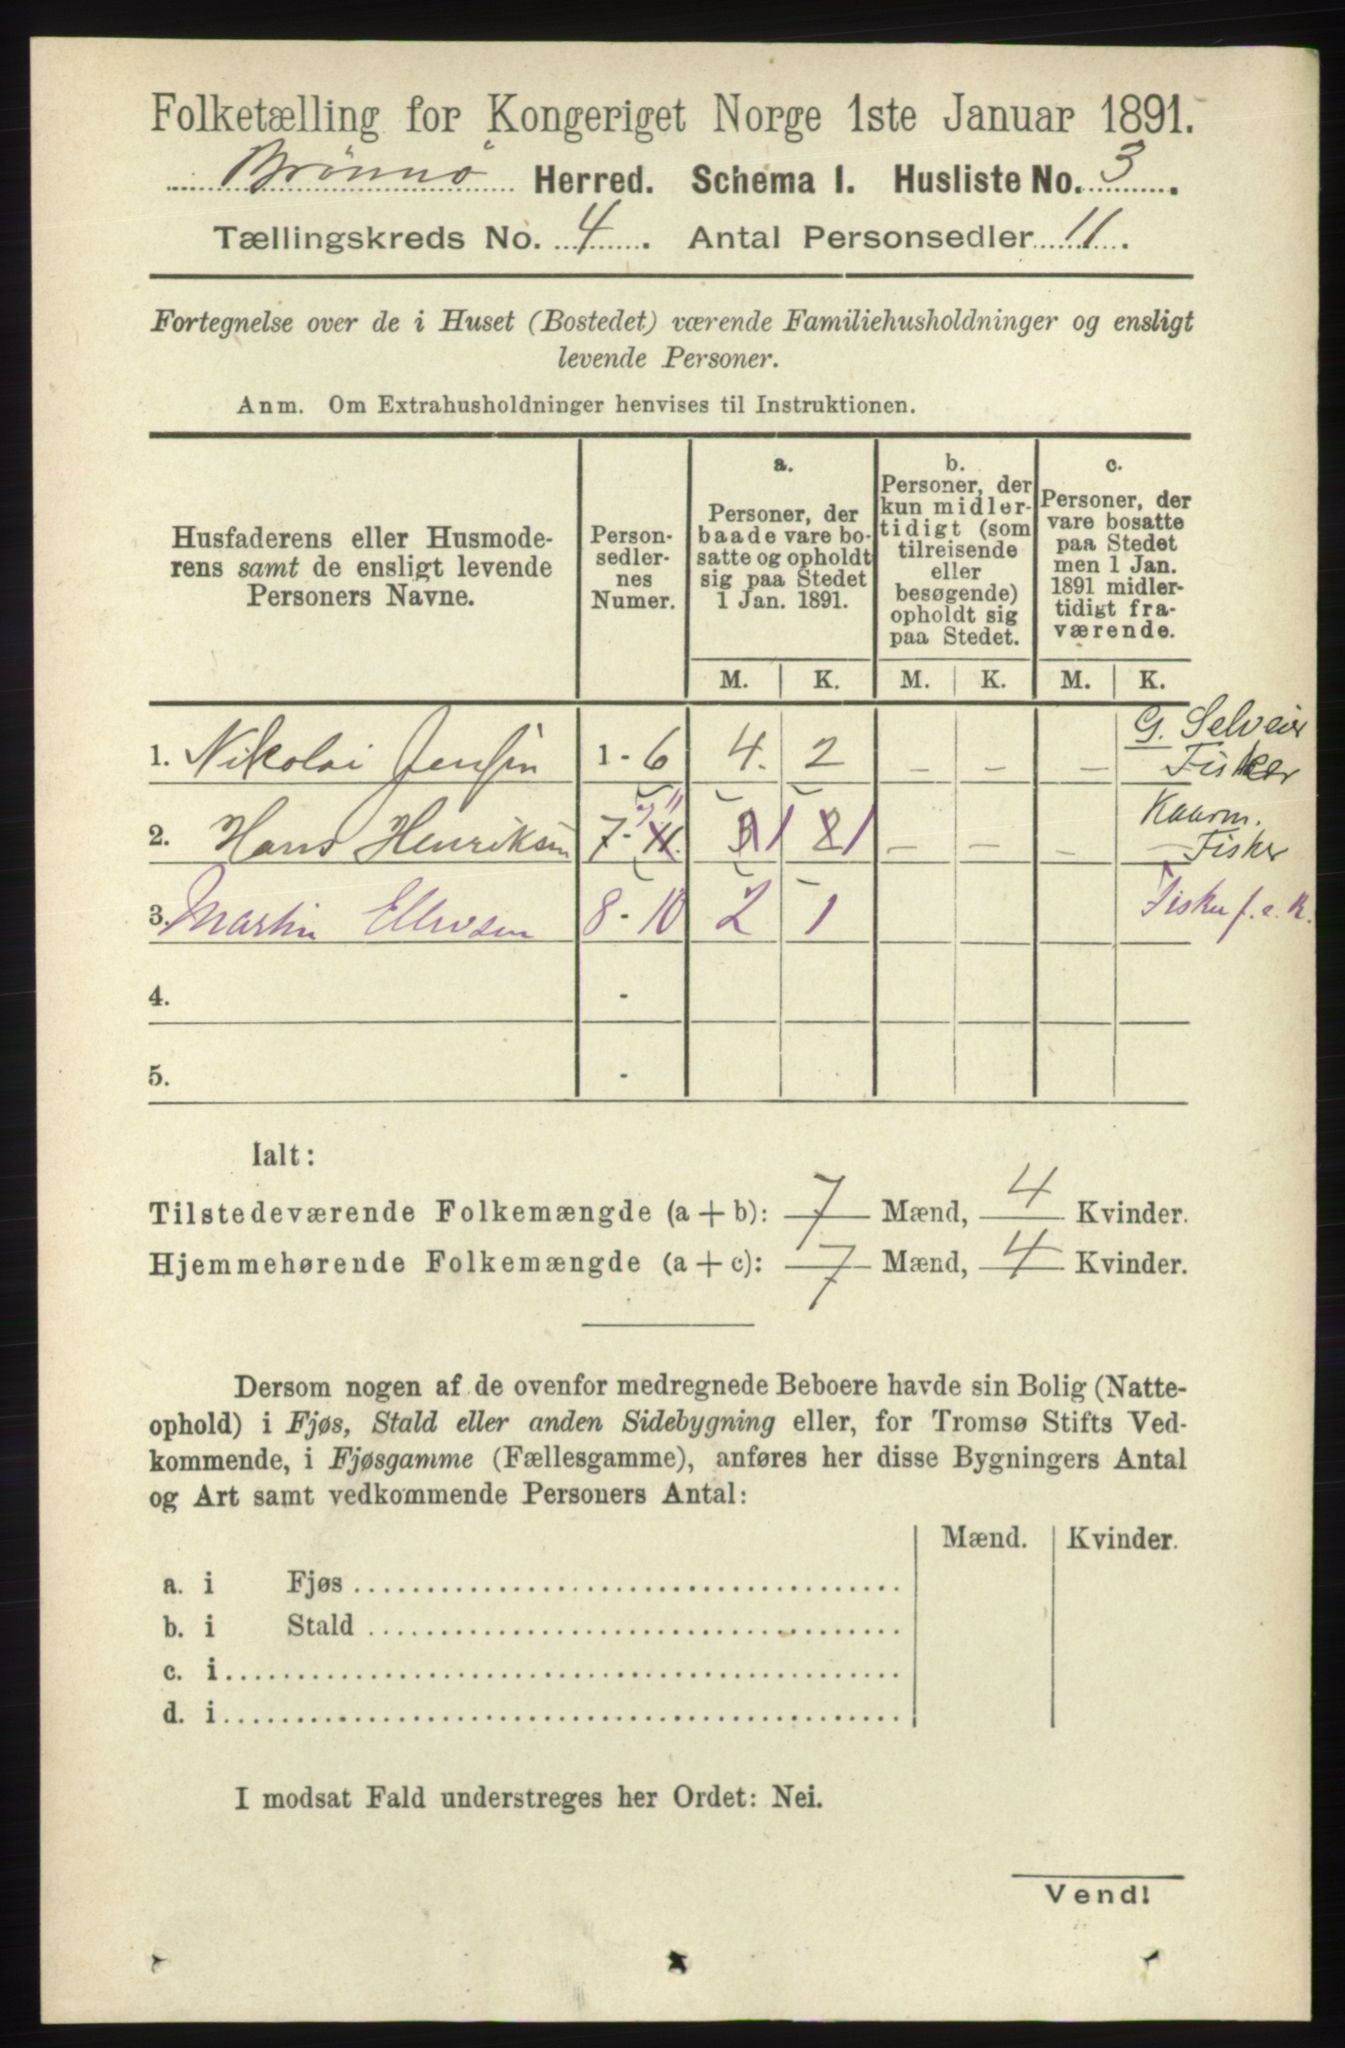 Folketælling for Kongeriget Norge 1ste Januar 1891.
Brønnø Herred. Schema I. Husliste No. 3.
Tællingskreds No. 4. Antal Personsedler 11.
Fortegnelse over de i Huset (Bostedet) værende Familiehusholdninger og ensligt
levende Personer.
Anm. Om Extrahusholdninger henvises til Instruktionen.
Husfaderens eller Husmode-
rens samt de ensligt levende
Personers Navne.
Person-
sedler-
nes
Numer.
a.
Personer, der
baade vare bo-
satte og opholdt
sig paa Stedet
1 Jan. 1891.
b.
Personer, der
kun midler-
tidigt (som
tilreisende
eller
besøgende)
opholdt sig
paa Stedet.
c.
Personer, der
vare bosatte
paa Stedet
men 1 Jan.
1891 midler-
tidigt fra-
værende.
M. K. M. K. M. K.
1. Nikolai Jensen 1 - 6 4. 2 - - - G. Selveier Fisker
2. Hans Henriksen 7 - 11. 3 1 2 1 - - - Kaarm. - Fisker
3. Martin Ellevsen 8 - 10 2 1 Fisker f. e. R.
4. -
5. -
Ialt:
Tilstedeværende Folkemængde (a + b): 7 Mænd, 4 Kvinder.
Hjemmehørende Folkemængde (a + c): 7 Mænd, 4 Kvinder.
Dersom nogen af de ovenfor medregnede Beboere havde sin Bolig (Natte-
ophold) i Fjøs, Stald eller anden Sidebygning eller, for Tromsø Stifts Ved-
kommende, i Fjøsgamme (Fællesgamme), anføres her disse Bygningers Antal
og Art samt vedkommende Personers Antal:
Mænd. Kvinder.
a. i Fjøs
b. i Stald
c. i
d. i
I modsat Fald understreges her Ordet: Nei.
Vend!